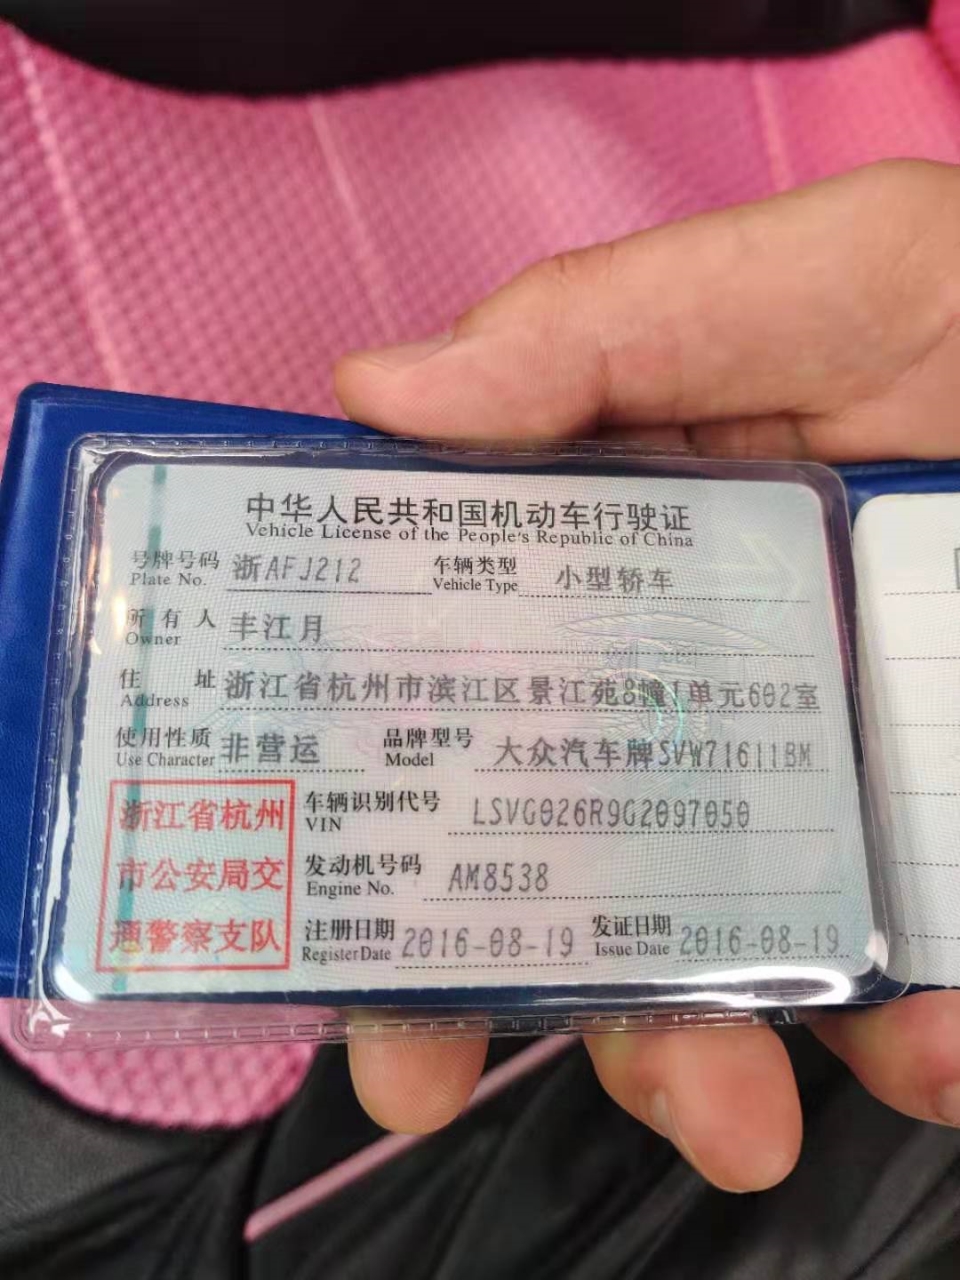 中华人民共和国机动车行驶证
Vehicle License of the People's Republic of China
号牌号码 浙AFJ212 车辆类型 小型轿车
Plate No. Vehicle Type
所有人 丰江月
Owner
住址 浙江省杭州市滨江区景江苑8幢1单元602室
Address
使用性质 非营运 品牌型号 大众汽车牌SVW71611BM
Use Character Model
浙江省杭州
市公安局交
通警察支队
车辆识别代号 LSVG026R9G2097050
VIN
发动机号码 AM8538
Engine No.
注册日期 2016-08-19 发证日期 2016-08-19
Register Date Issue Date